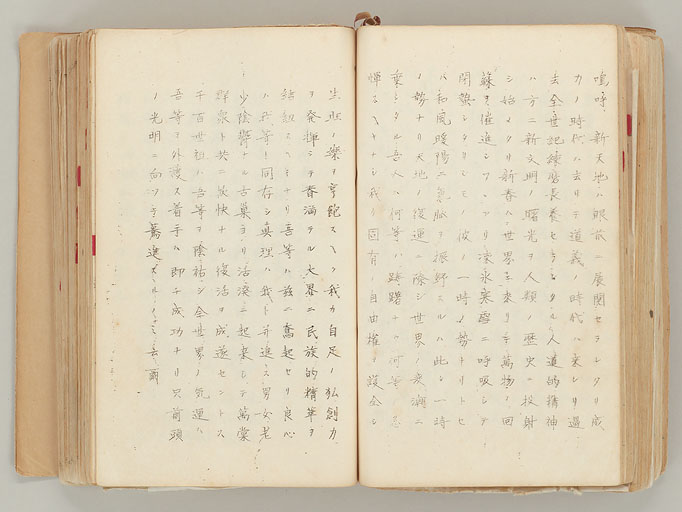 嗚呼 新天地ハ眼前ニ展開セラレタリ威
力ノ時代ハ去リテ道義ノ時代ハ来レリ過
去全世紀錬磨長養セラレタル人道的精神
ハ方ニ新文明ノ曙光ヲ人類ノ歴史ニ投射
シ始メタリ新春ハ世界ニ来リテ萬物ノ回
蘇ヲ催進シツヽアリ凍氷寒雪ニ呼吸シテ
閉蟄シタリシモノ彼ノ一時ノ勢ナリトセ
ハ和風暖陽ニ気脈ヲ振舒スルハ此ノ一時
ノ勢ナリ天地ノ復運ニ際シ世界ノ変潮ニ
乗シタル吾人ハ何等ノ躊躇ナク何等ノ忌
憚スヘキナシ我ノ固有ノ自由権ヲ護全シ
生旺ノ楽ヲ享飽スヘク我カ自足ノ独創力
ヲ発揮シテ春満タル大界ニ民族的精華ヲ
結紐スヘキナリ吾等ハ茲ニ奮起セリ良心
ハ我等ト同存シ真理ハ我ト并進ス男女老
少陰鬱ナル古巣ヨリ活溌ニ起来シテ萬彙
群衆ト共ニ欣快ナル復活ヲ成遂セントス
千百世祖ハ吾等ヲ陰祐シ全世界ノ気運ハ
吾等ヲ外護ス着手ハ即チ成功ナリ只前頭
ノ光明ニ向ツテ驀進スルノミ云爾